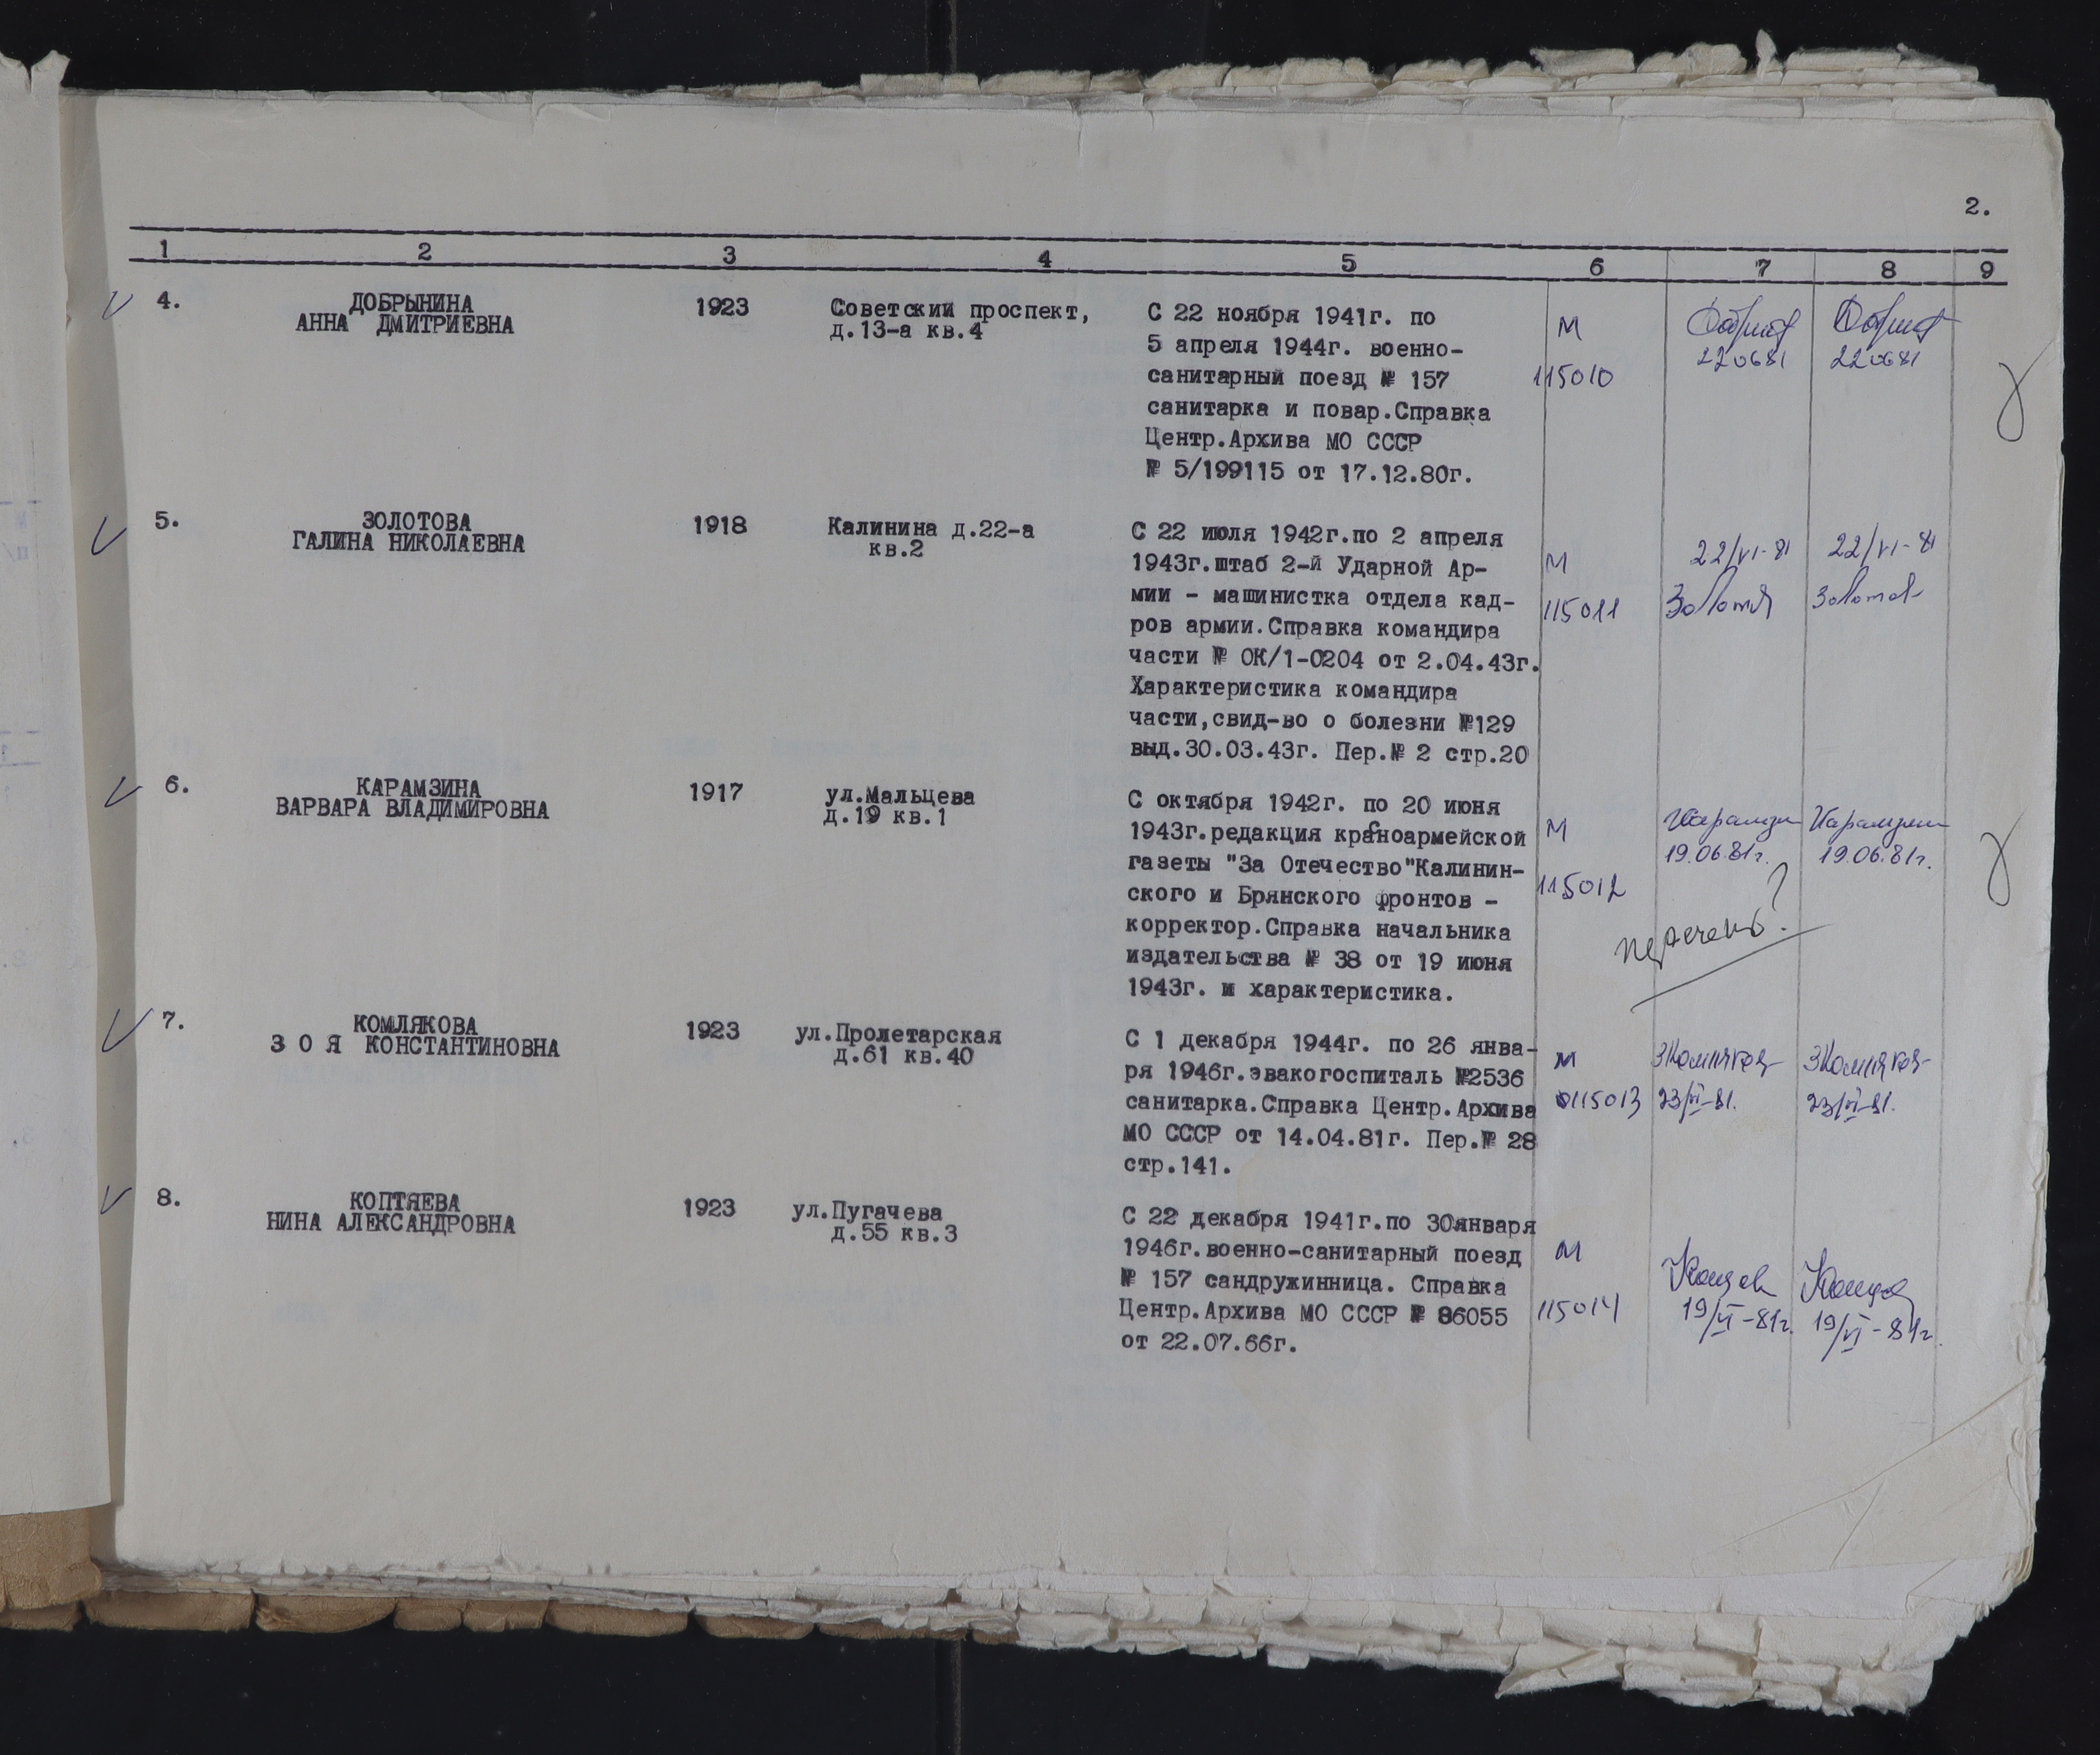 2.
1 2 3 4 5 6 7 8 9
4. ДОБРЫНИНА
АННА ДМИТРИЕВНА
1923
Советский проспект,
д.13-а кв.4
С 22 ноября 1941г. по
5 апреля 1944г. военно-
санитарный поезд № 157
санитарка и повар.Справка
Центр.Архива МО СССР
№ 5/199115 от 17.12.80г.
М
115010
220681
220681
5. ЗОЛОТОВА
ГАЛИНА НИКОЛАЕВНА
1918
Калинина д.22-а
кв.2
С 22 июля 1942г.по 2 апреля
1943г.штаб 2-й Ударной Ар-
мии - машинистка отдела кад-
ров армии.Справка командира
части № ОК/1-0204 от 2.04.43г.
Характеристика командира
части,свид-во о болезни №129
выд.30.03.43г. Пер.№ 2 стр.20
М
115011
22/VI-81
22/VI-81
6. КАРАМЗИНА
ВАРВАРА ВЛАДИМИРОВНА
1917
ул.Мальцева
д.19 кв.1
С октября 1942г. по 20 июня
1943г.редакция красноармейской
газеты "За Отечество"Калинин-
ского и Брянского фронтов -
корректор.Справка начальника
издательства № 38 от 19 июня
1943г. и характеристика.
М
115012
19.06.81г.
19.06.81г.
перечень?
7. КОМЛЯКОВА
З О Я КОНСТАНТИНОВНА
1923
ул.Пролетарская
д.61 кв.40
С 1 декабря 1944г. по 26 янва-
ря 1946г.эвакогоспиталь №2536
санитарка.Справка Центр.Архива
МО СССР от 14.04.81г. Пер.№ 28
стр.141.
М
115013
23/VI-81.
23/VI-81.
8. КОПТЯЕВА
НИНА АЛЕКСАНДРОВНА
1923
ул.Пугачева
д.55 кв.3
С 22 декабря 1941г.по 30января
1946г.военно-санитарный поезд
№ 157 сандружинница. Справка
Центр.Архива МО СССР № 86055
от 22.07.66г.
М
115014
19/VI-81г.
19/VI-81г.